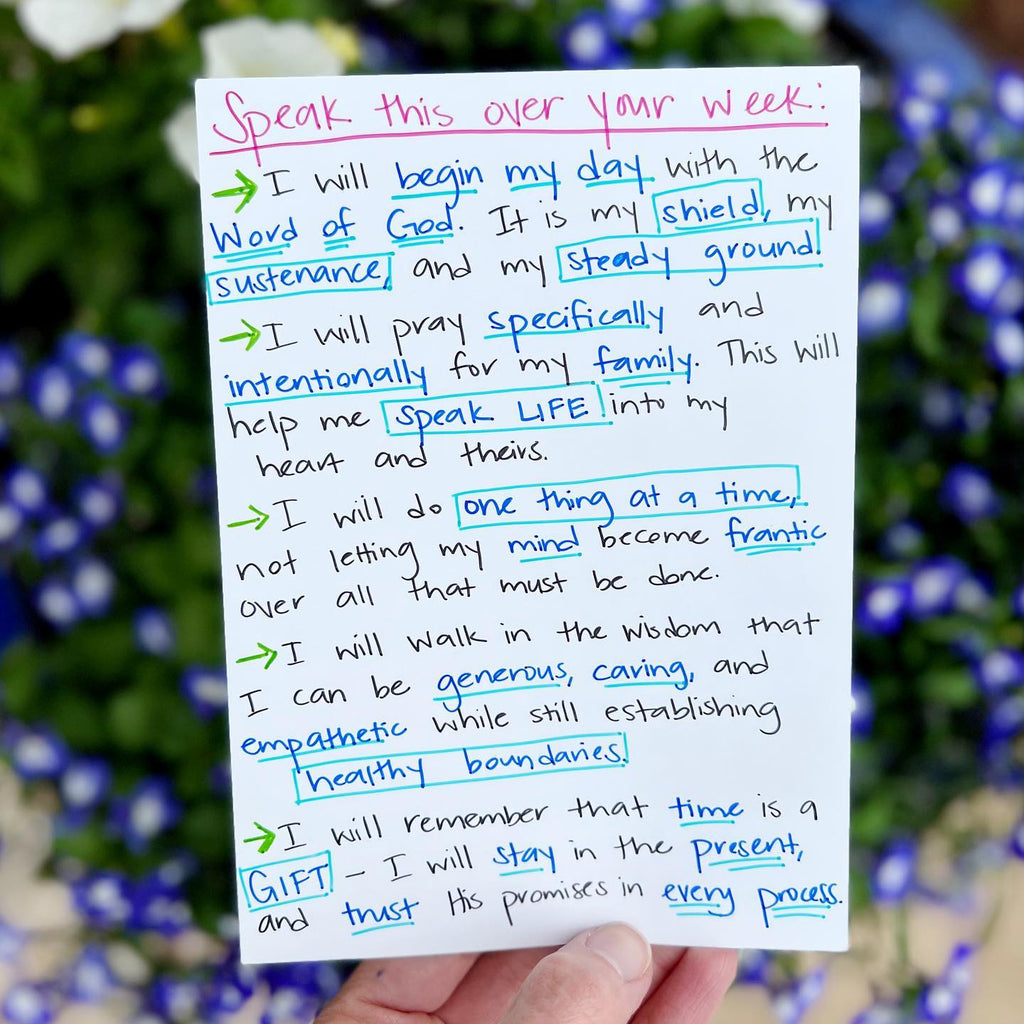 Speak this over your week:
→ I will begin my day with the
Word of God. It is my shield, my
sustenance, and my steady ground!
→ I will pray specifically and
intentionally for my family. This will
help me speak LIFE into my
heart and theirs.
→ I will do one thing at a time,
not letting my mind become frantic
over all that must be done.
→ I will walk in the wisdom that
I can be generous, caring, and
empathetic while still establishing
healthy boundaries.
→ I will remember that time is a
GIFT – I will stay in the present,
and trust His promises in every process.